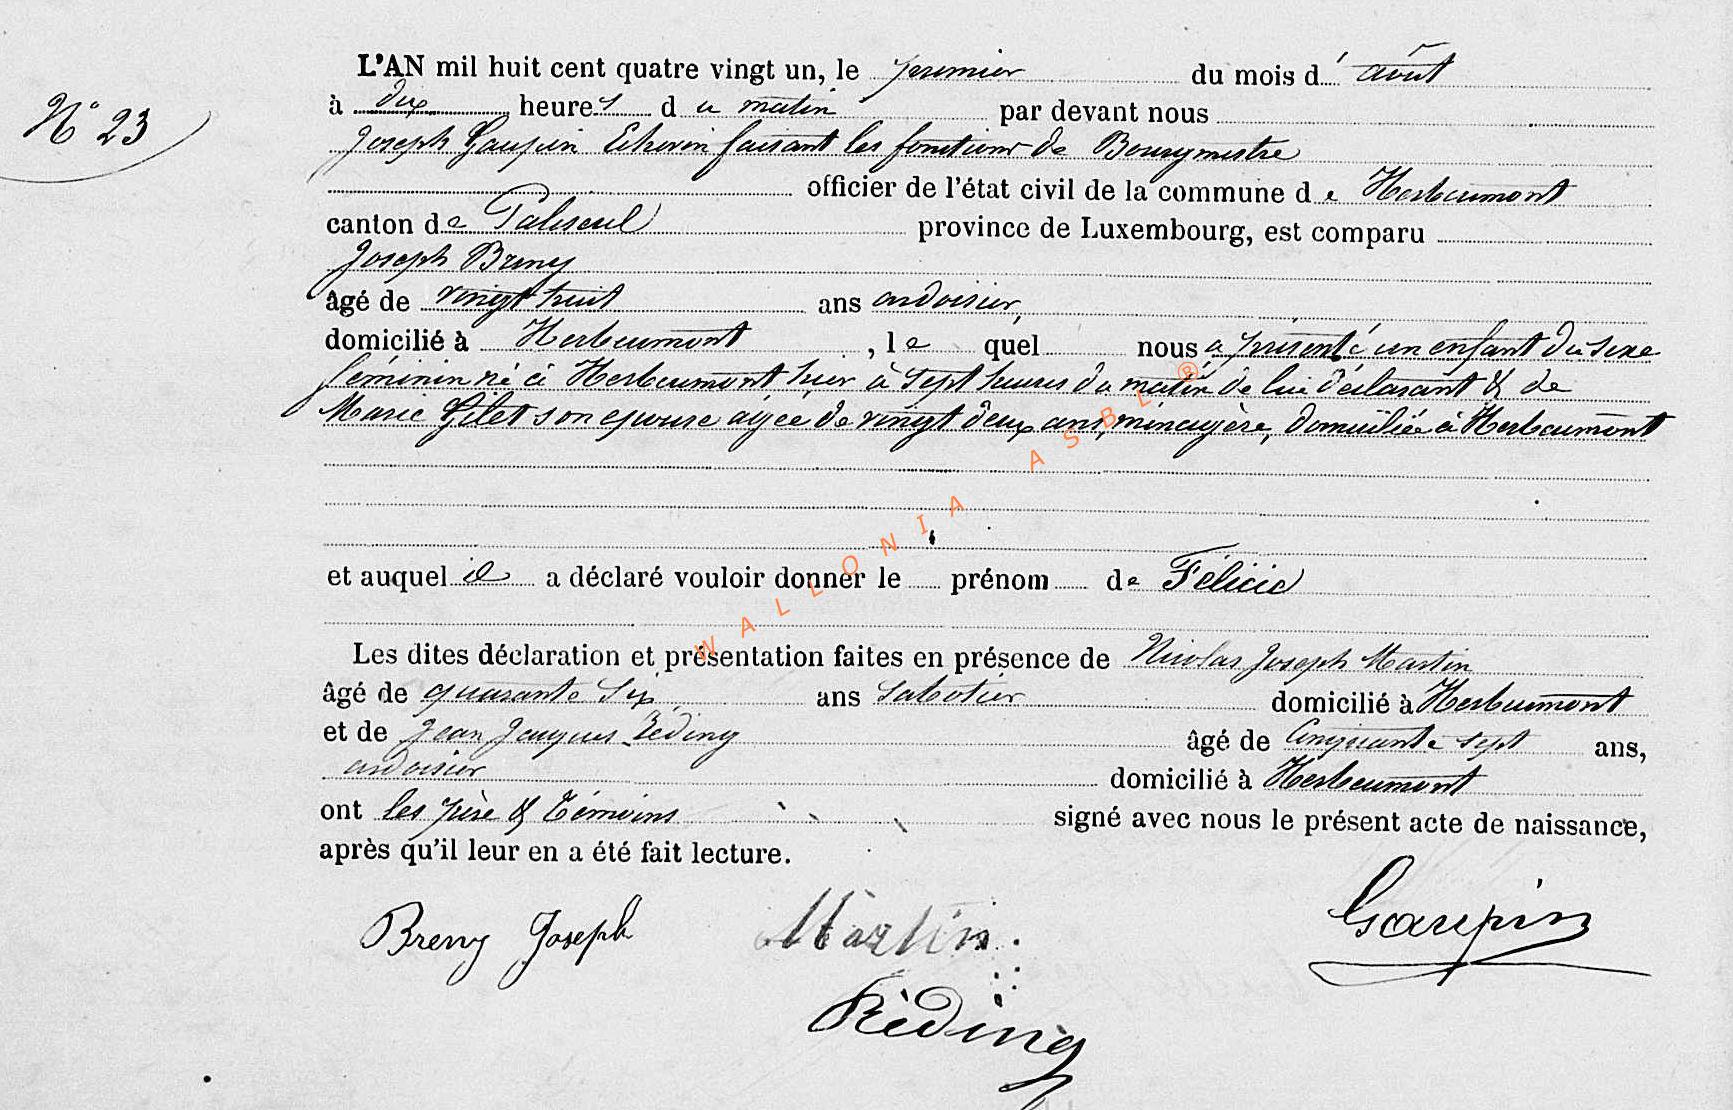 N° 23
L'AN mil huit cent quatre vingt un, le premier du mois d' août
à dix heures du matin par devant nous
Joseph Gaupin Echevin faisant les fonctions de Bourgmestre
officier de l'état civil de la commune de Herbeumont
canton de Paliseul province de Luxembourg, est comparu
Joseph Breny
âgé de vingt huit ans ardoisier,
domicilié à Herbeumont, le quel nous a présenté un enfant du sexe
féminin né à Herbeumont hier à sept heures du matin de lui déclarant & de
Marie Gilet son épouse agée de vingt deux ans, ménagère, domiciliée à Herbeumont
et auquel il a déclaré vouloir donner le prénom de Félicie
Les dites déclaration et présentation faites en présence de Nicolas Joseph Martin
âgé de quarante six ans sabotier domicilié à Herbeumont
et de Jean Jacques Réding âgé de Cinquante sept ans,
ardoisier domicilié à Herbeumont
ont les père & témoins signé avec nous le présent acte de naissance,
après qu'il leur en a été fait lecture.
Breny Joseph Martin. Gaupin
Rèding
WALLONIA ASBL ®